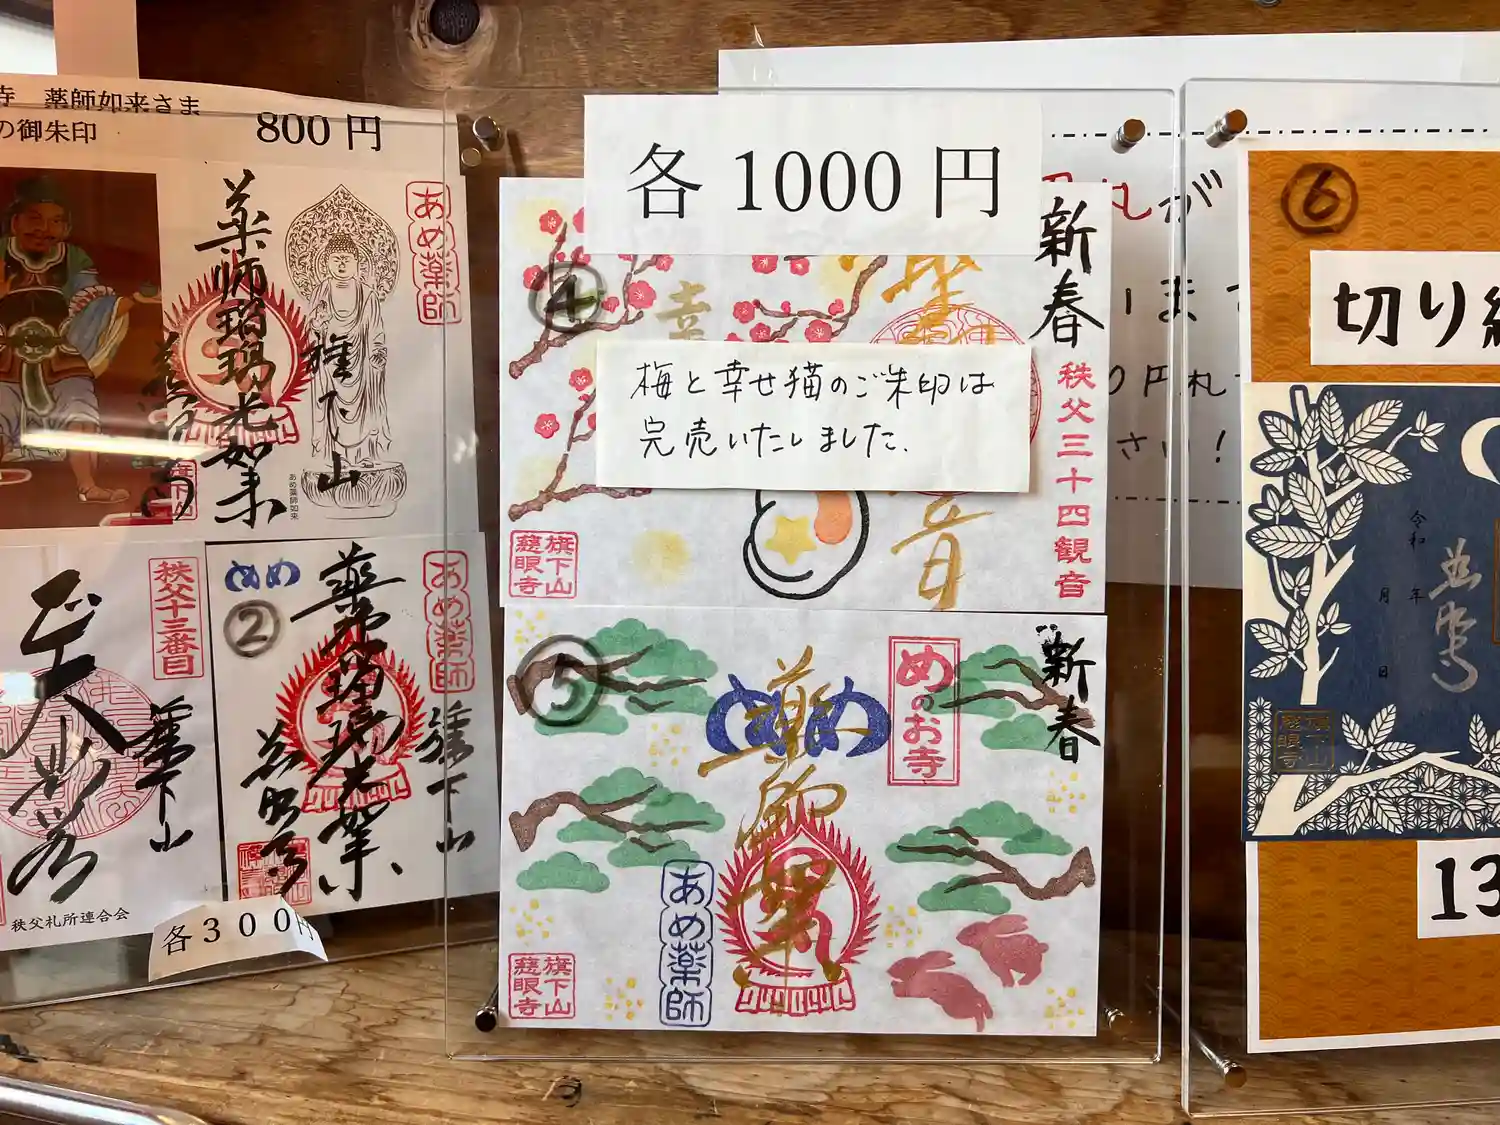 寺 薬師如来さま
の御朱印
800 円
あめ薬師
薬師瑠璃光如来
旗下山
あめ薬師如来
秩父十三番目
旗下山
秩父札所連合会
各300円
めめ
②
あめ薬師
旗下山
慈眼寺
各 1000 円
新春
④
幸
梅と幸せ猫のご朱印は
完売いたしました.
秩父三十四観音
旗下山
慈眼寺
⑤
新春
めめ
めのお寺
薬師如来
あめ薬師
旗下山
慈眼寺
札が
います
0円札
さい!
⑥
切り
令和 年
月 日
旗下山
慈眼寺
13